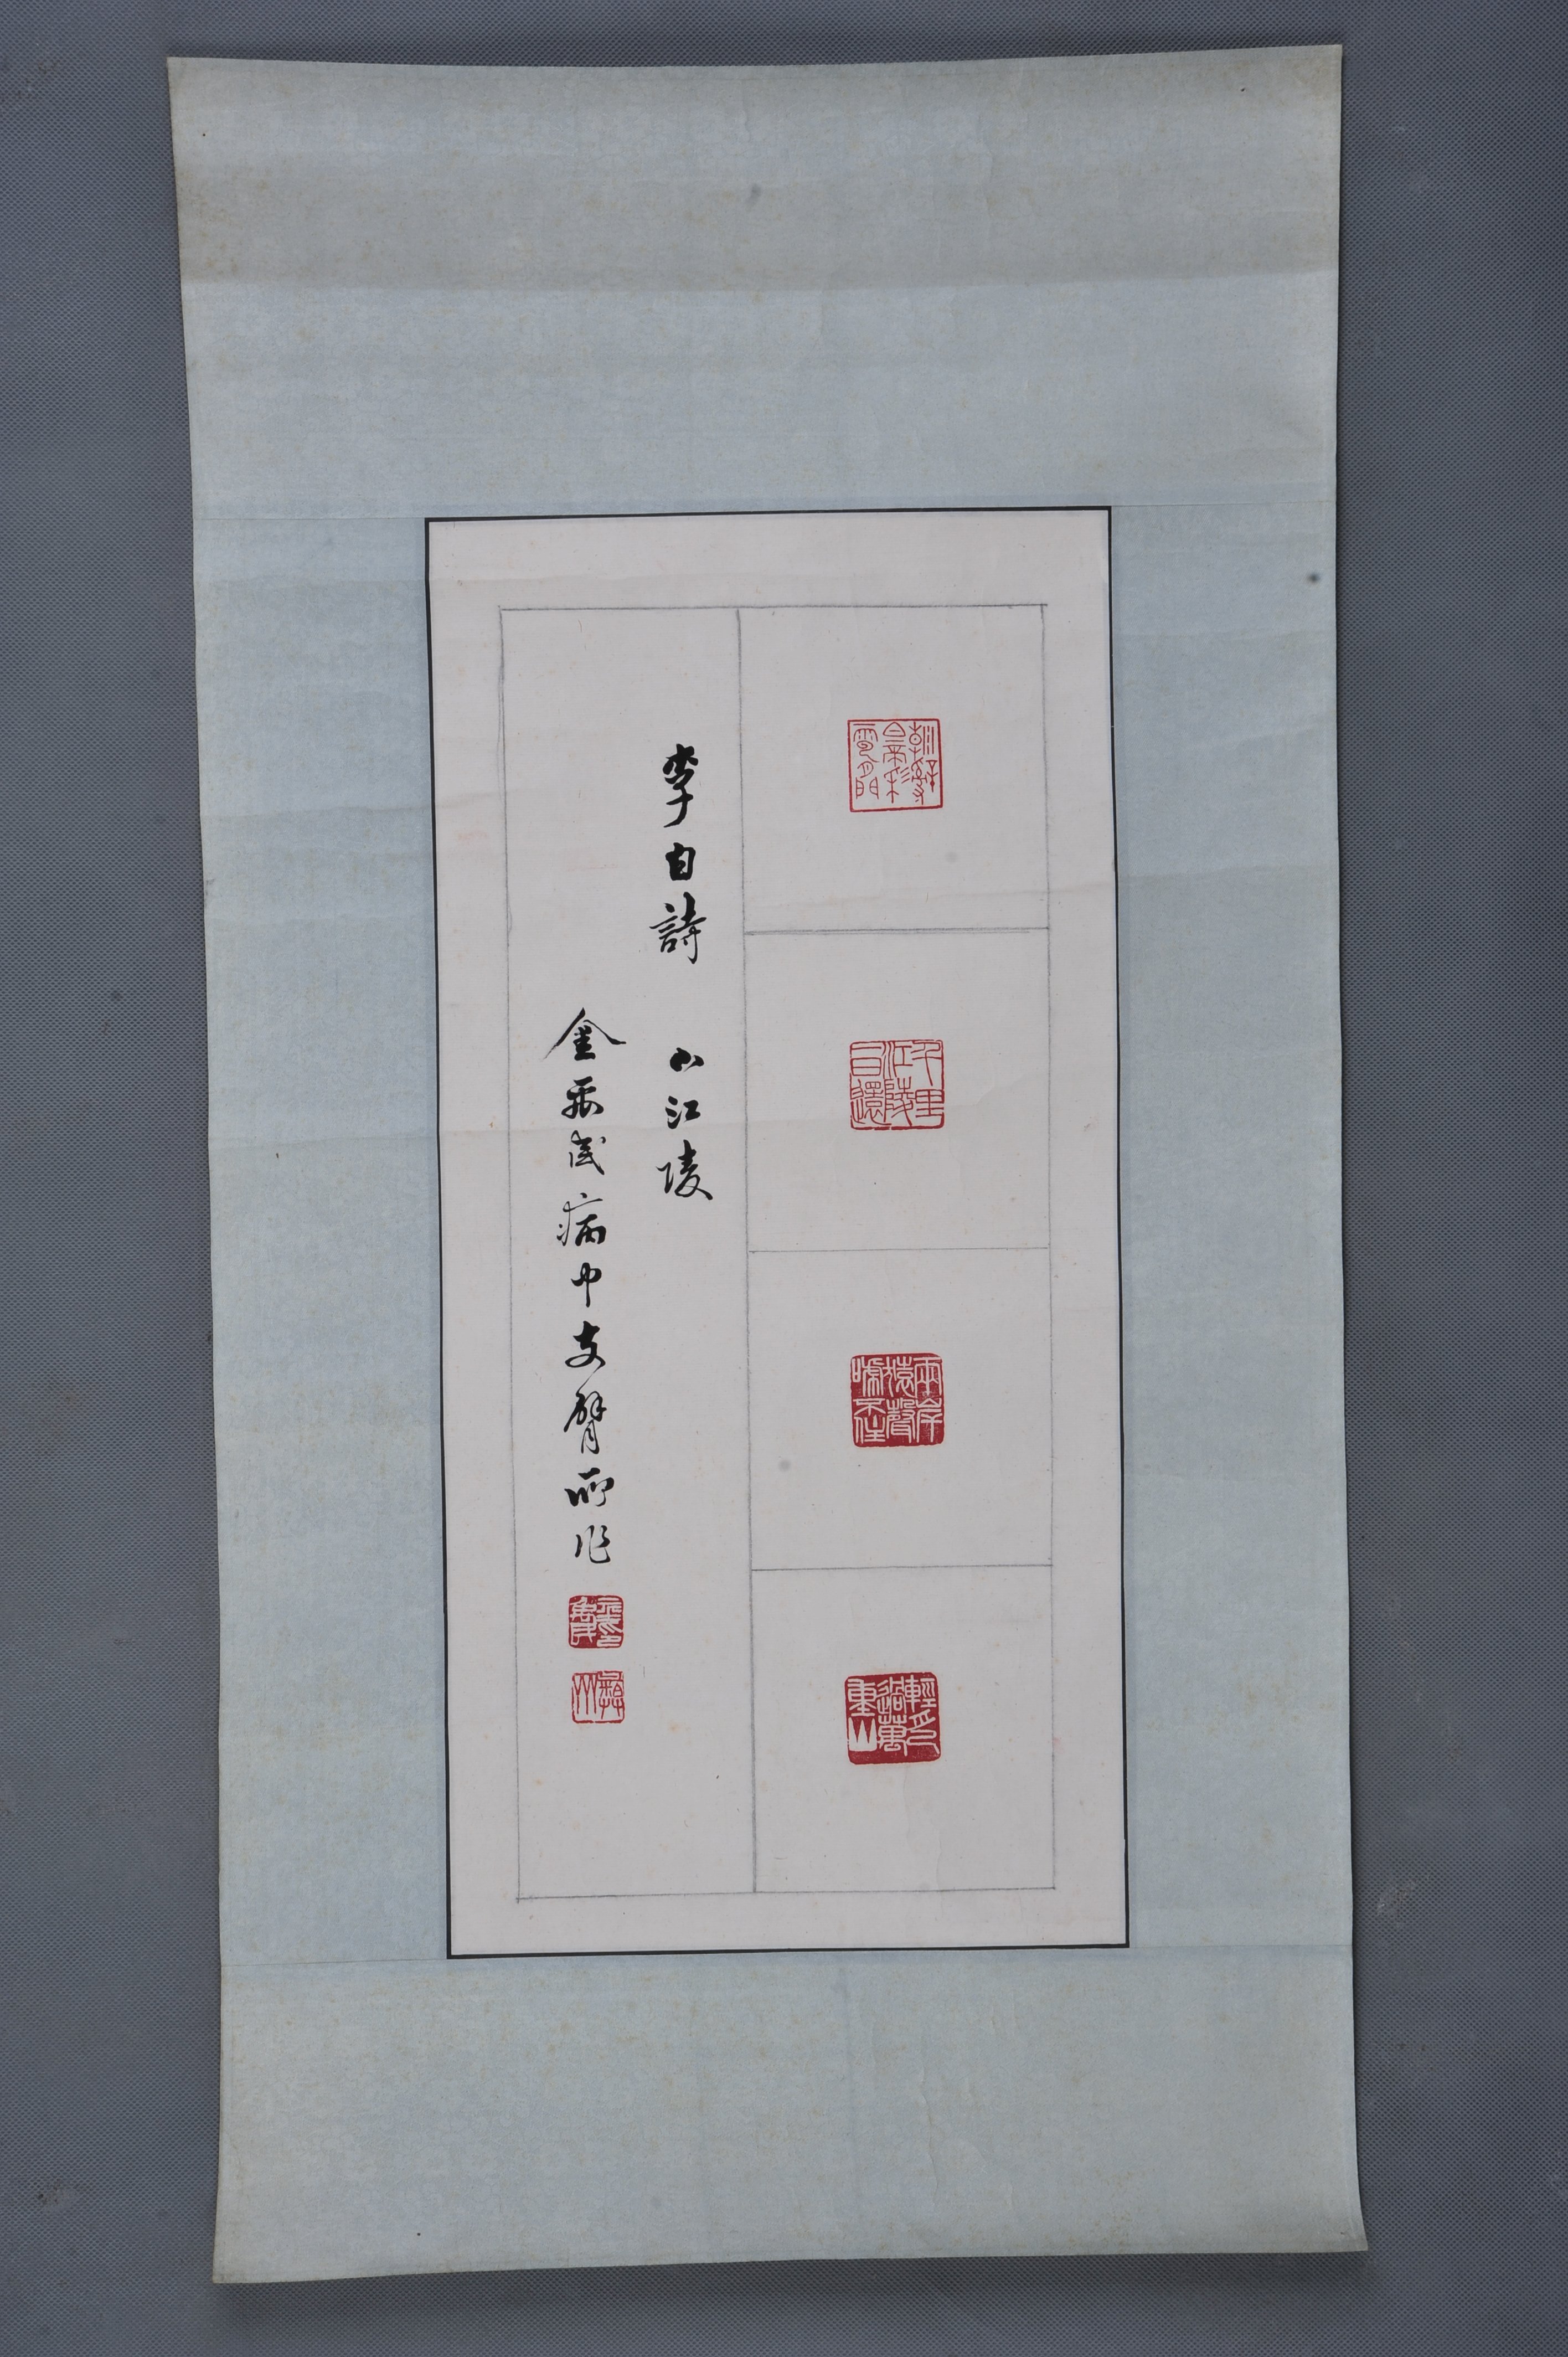 朝辭白帝彩雲間
千里江陵一日還
兩岸猿聲嗁不住
輕舟已過萬重山
李白詩 下江陵
金禹民病中支臂所作